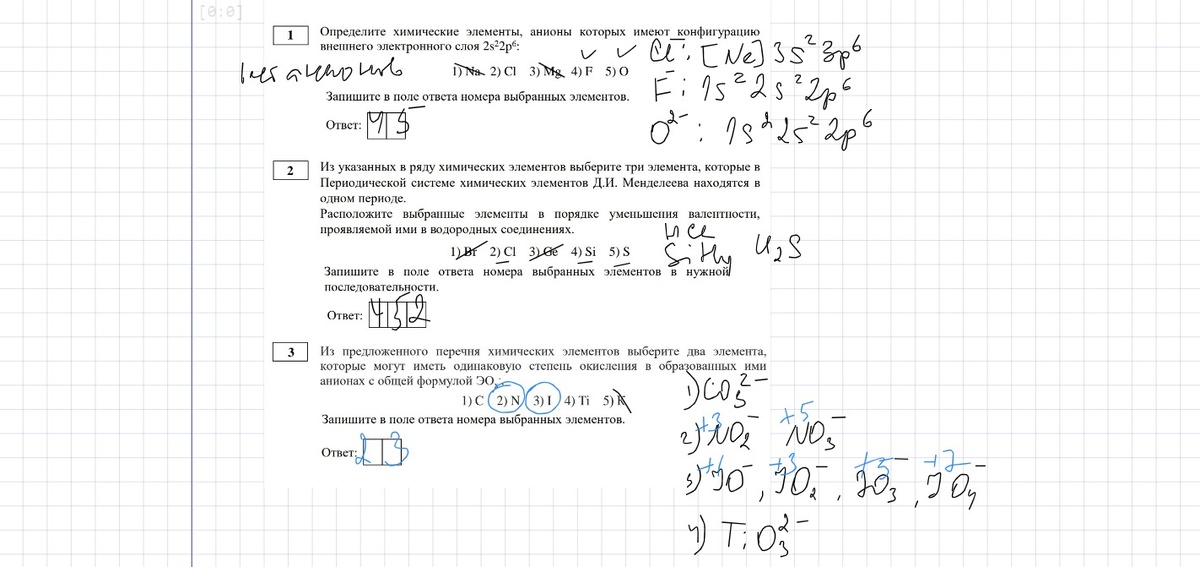 [0:0]
1
Определите химические элементы, анионы которых имеют конфигурацию
внешнего электронного слоя 2s²2p⁶:
нет анионов
1) Na 2) Cl 3) Mg 4) F 5) O
Запишите в поле ответа номера выбранных элементов.
Ответ: 45
Cl⁻: [Ne] 3s² 3p⁶
F⁻: 1s² 2s² 2p⁶
O²⁻: 1s² 2s² 2p⁶
2
Из указанных в ряду химических элементов выберите три элемента, которые в
Периодической системе химических элементов Д.И. Менделеева находятся в
одном периоде.
Расположите выбранные элементы в порядке уменьшения валентности,
проявляемой ими в водородных соединениях.
1) Br 2) Cl 3) Ge 4) Si 5) S
Запишите в поле ответа номера выбранных элементов в нужной
последовательности.
Ответ: 452
HCl
SiH₄ H₂S
3
Из предложенного перечня химических элементов выберите два элемента,
которые могут иметь одинаковую степень окисления в образованных ими
анионах с общей формулой ЭОₓ:
1) C 2) N 3) I 4) Ti 5) K
Запишите в поле ответа номера выбранных элементов.
Ответ: 23
1) CO₃²⁻
+3 +5
2) NO₂⁻ NO₃⁻
+1 +3 +5 +7
3) IO⁻, IO₂⁻, IO₃⁻, IO₄⁻
4) TiO₃²⁻